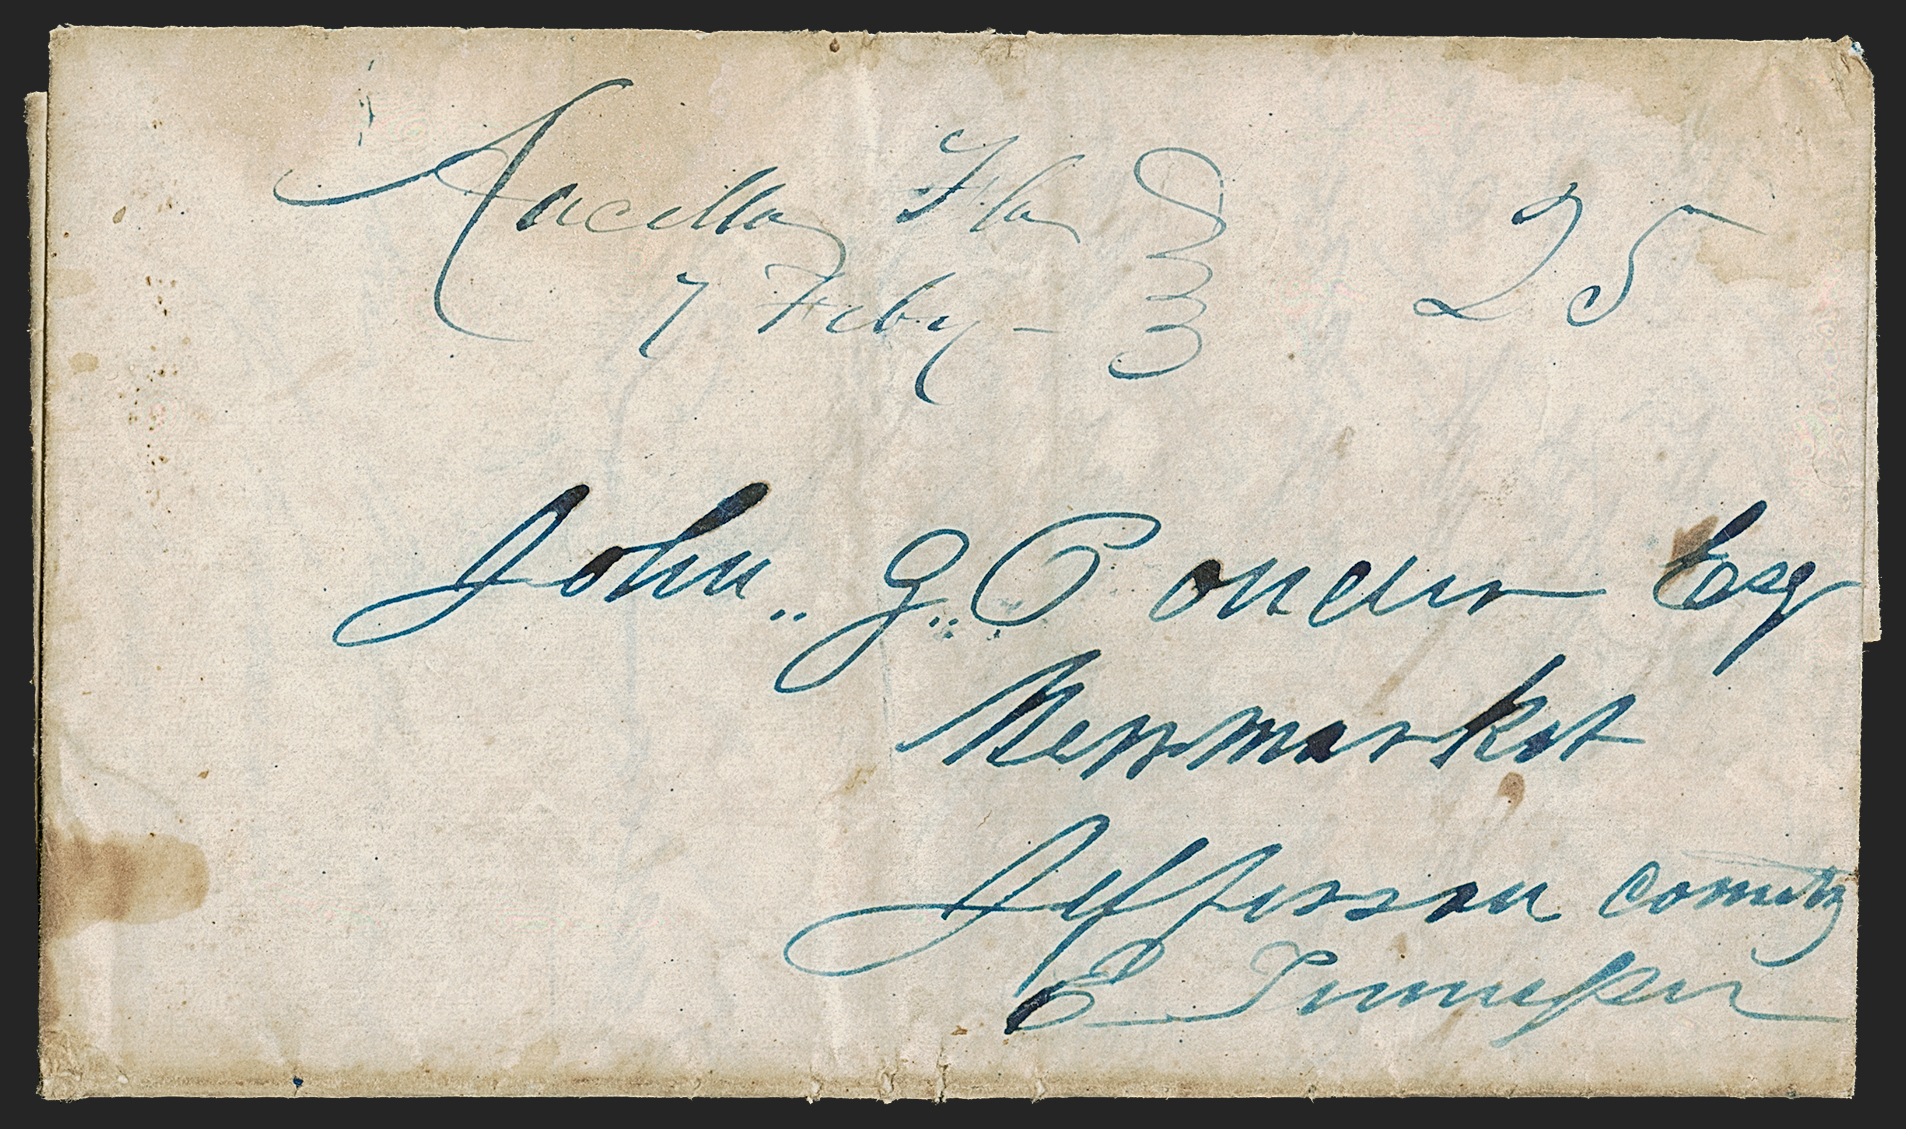 Aucilla Fla 25
7 Feby -
John.. G.. Ponder Esq
Newmarket
Jefferson County
E Tennessee